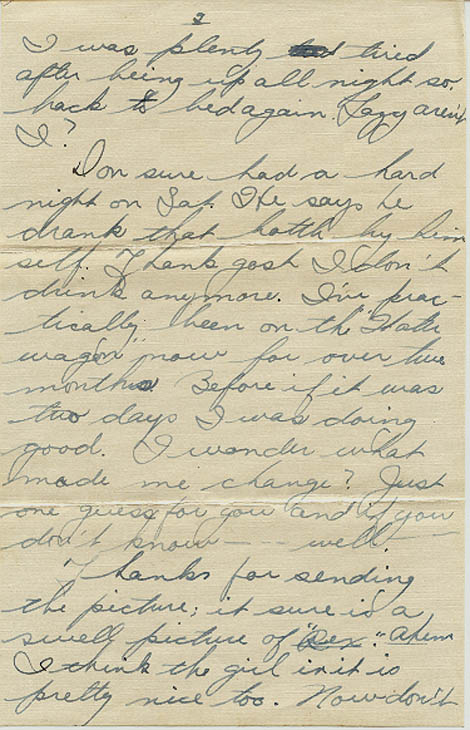 2
I was plenty tired
after being up all night so.
back to bed again. Lazy aren't
I?
Don sure had a hard
night on Sat. He says he
drank that bottle by him
self. Thank gosh I don't
drink anymore. I've prac-
tically been on the "Water
wagon" now for over two
months. Before if it was
two days I was doing
good. I wonder what
made me change? Just
one guess for you and if you
don't know -- well --
Thanks for sending
the picture; it sure is a
swell picture of "Rex". Ahem
I think the girl in it is
pretty nice too. Now don't